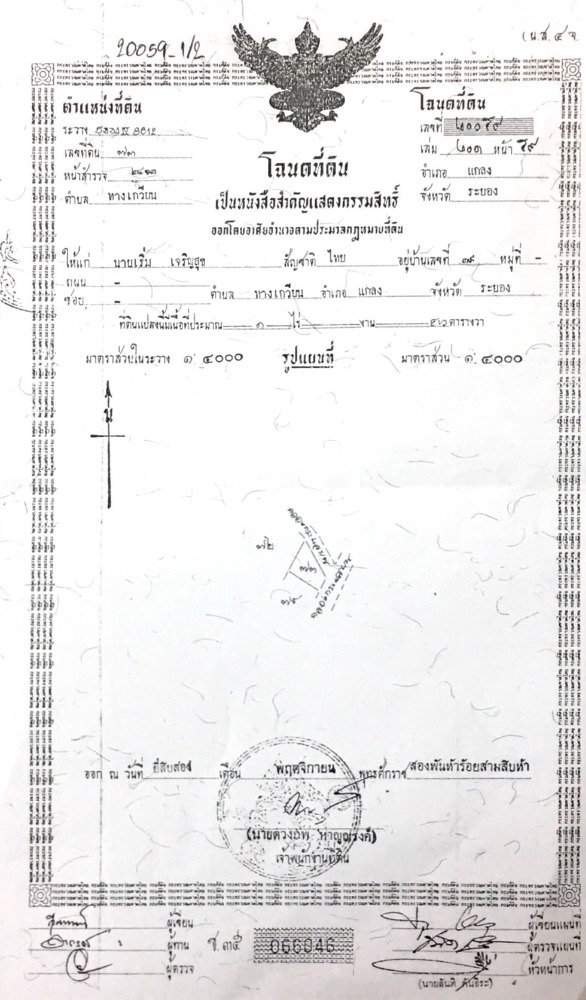 20059-1/2
(น.ส. ๔ จ
ตำแหน่งที่ดิน
ระวาง 8612
เลขที่ดิน ๗๓
หน้าสำรวจ
ตำบล ทางเกวียน
โฉนดที่ดิน
เลขที่ ๒๐๐๕๙
เล่ม ๒๐๑ หน้า ๕๙
อำเภอ แกลง
จังหวัด ระยอง
โฉนดที่ดิน
เป็นหนังสือสำคัญแสดงกรรมสิทธิ์
ออกโดยอาศัยอำนาจตามประมวลกฎหมายที่ดิน
ให้แก่ นายเริ่ม เจริญสุข สัญชาติ ไทย อยู่บ้านเลขที่ ๓๙ หมู่ที่ -
ถนน -
ซอย - ตำบล ทางเกวียน อำเภอ แกลง จังหวัด ระยอง
ที่ดินแปลงนี้มีเนื้อที่ประมาณ ๑ ไร่ - งาน ๕๖ ตารางวา
มาตราส่วนในระวาง ๑:๔๐๐๐ รูปแผนที่ มาตราส่วน ๑:๔๐๐๐
น
๗๒
๗๓
๗๔
ออก ณ วันที่ ยี่สิบสอง เดือน พฤศจิกายน พุทธศักราช สองพันห้าร้อยสามสิบห้า
เจ้าพนักงานที่ดิน
ผู้เขียน
ผู้ทาน
ผู้ตรวจ
ช.๓๕ 066046
ผู้เขียนแผนที่
ผู้ตรวจแผนที่
หัวหน้าการ